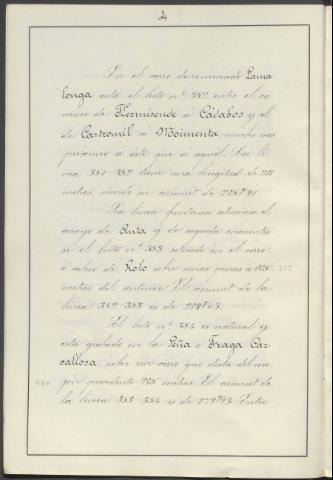 4
En el cerro denominado Lama
longa está el hito nº 352 entre el ca
mino de Hermisende á Cádabos y el
de Castromil á Moimenta, mucho mas
próximo á éste que á aquél. La lí
nea 351-352 tiene una longitud de
metros, siendo su azimut de
La línea frontera atraviesa el
arroyo de y de seguida encuentra
se el hito nº 353 situado en el cerro
ó cabezo de Rolo sobre unas peñas á
metros del anterior. El azimut de la
línea 352-353 es de
El hito nº 354 es natural y
está grabado en la Peña ó Fraga Car
vallosa, sobre un cerro que dista del mo
jon precedente metros. El azimut de
la línea 353-354 es de Entre